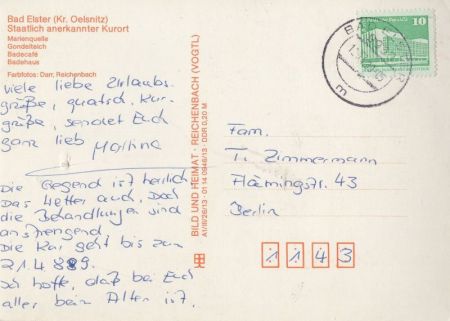 Bad Elster (Kr. Oelsnitz)
Staatlich anerkannter Kurort
Marienquelle
Gondelteich
Badecafé
Badehaus
Farbfotos: Darr, Reichenbach
viele liebe Urlaubs-
grüße, quatsch, Kur-
grüße, sendet Euch
ganz lieb Martina
Die Gegend ist herrlich
das Wetter auch. Doch
die Behandlungen sind
anstrengend.
Die Kur geht bis zum
21.4.89.
Ich hoffe, daß bei Euch
alles beim Alten ist.
BILD UND HEIMAT · REICHENBACH (VOGTL)
A1/III/26/13 · 01 14 0946/13 · DDR 0,20 M
10
BAD
Fam.
T. Zimmermann
Flämingstr. 43
Berlin
1143